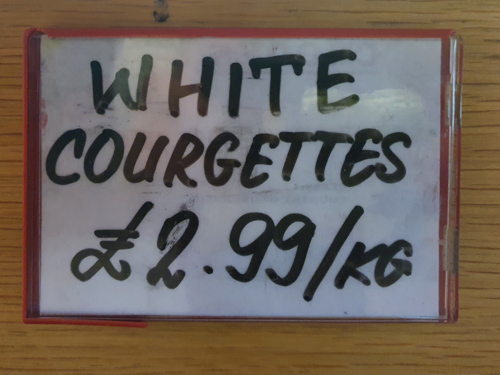 WHITE
COURGETTES
£2.99/KG